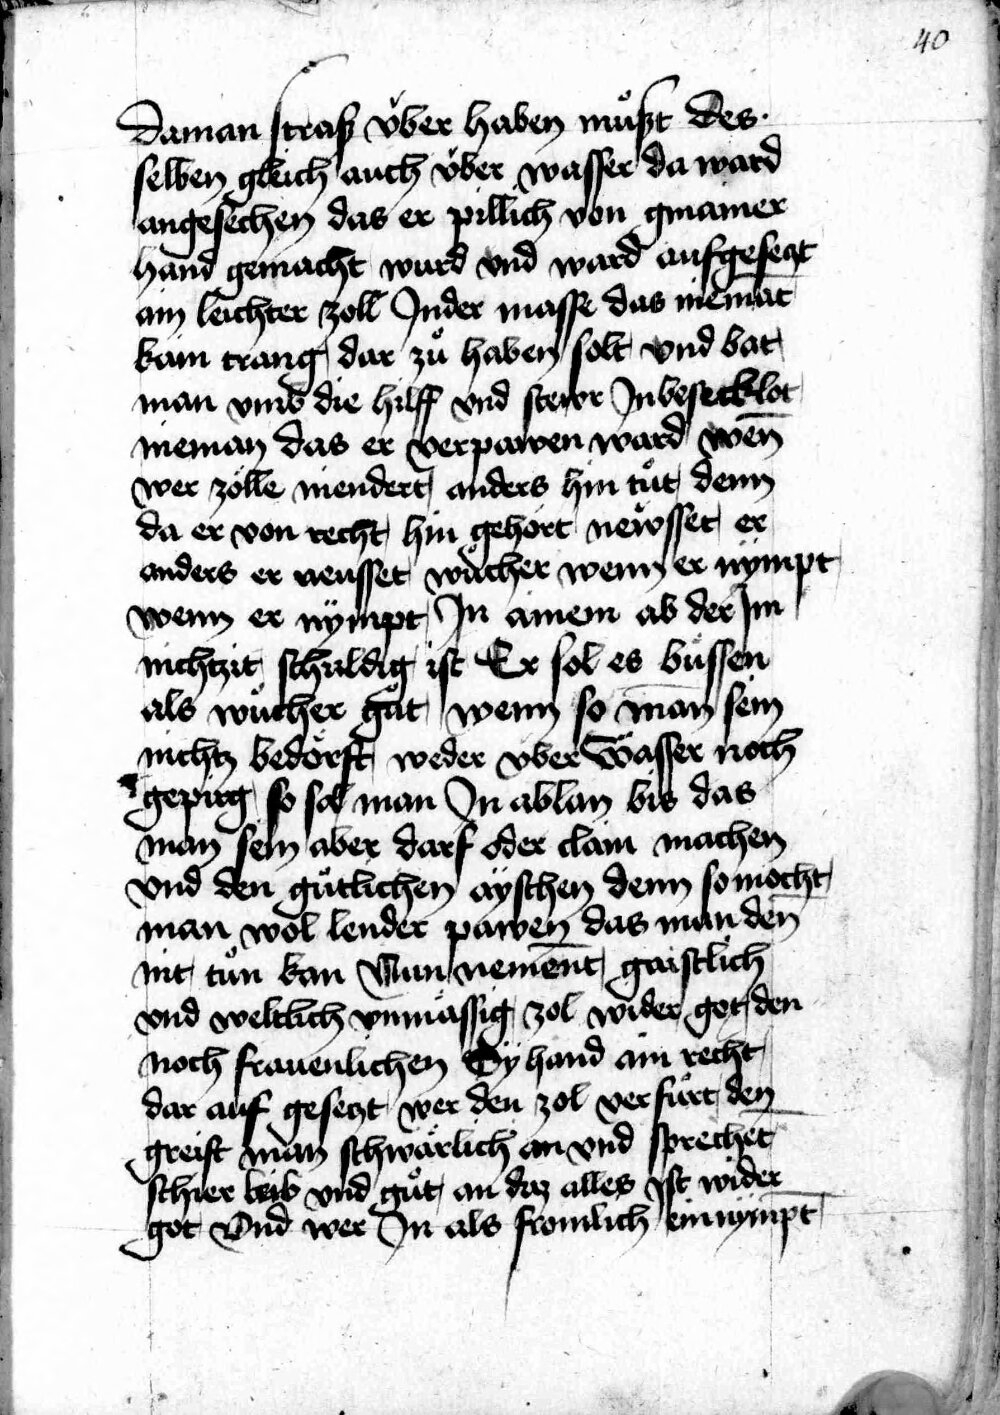 40
Daman straß v̈ber haben mu̇ßt Des
selben gleich auch v̈ber wasser da ward
angesechen das er pillich von gmainer
hand gemacht wurd vnd ward aufgeseczt
ain leichter zoll Jnder masse das niema̅t
kain trang dar zu̇ haben solt vnd bat
man vmb die hilff vnd stewr
nieman das er verpawen ward wen̅
wer zölle niendert anders hin tu̇t denn
da er von recht hin gehört newsset er
anders er neusset wu̇cher wenn er nÿmpt
wenn er nÿmpt Jn ainem ab der Jm
nichtzit schuldig ist Er sol es büssen
als wu̇cher gu̇t wenn so man sein
nichtz bedörft weder v̈ber wasser noch
gepirg so sol man Jn ablan bis das
man sein aber darf oder clain machen
vnd den gu̇tlichen äyschen denn so möcht
man wol lender pawen̅ das man den̅
nit tu̇n kan Nun neme̅nt gaistlich
vnd weltlich vnmässig zol wider got den
noch frauenlichen Sy hand ain recht
dar auf gesetzt wer den zol verfu̇rt den
greift man schwärlich an vnd spreche̅t
schier leib vnd gu̇t an daz alles ist wider
got Vnd wer Jn als fromlich einnÿmpt